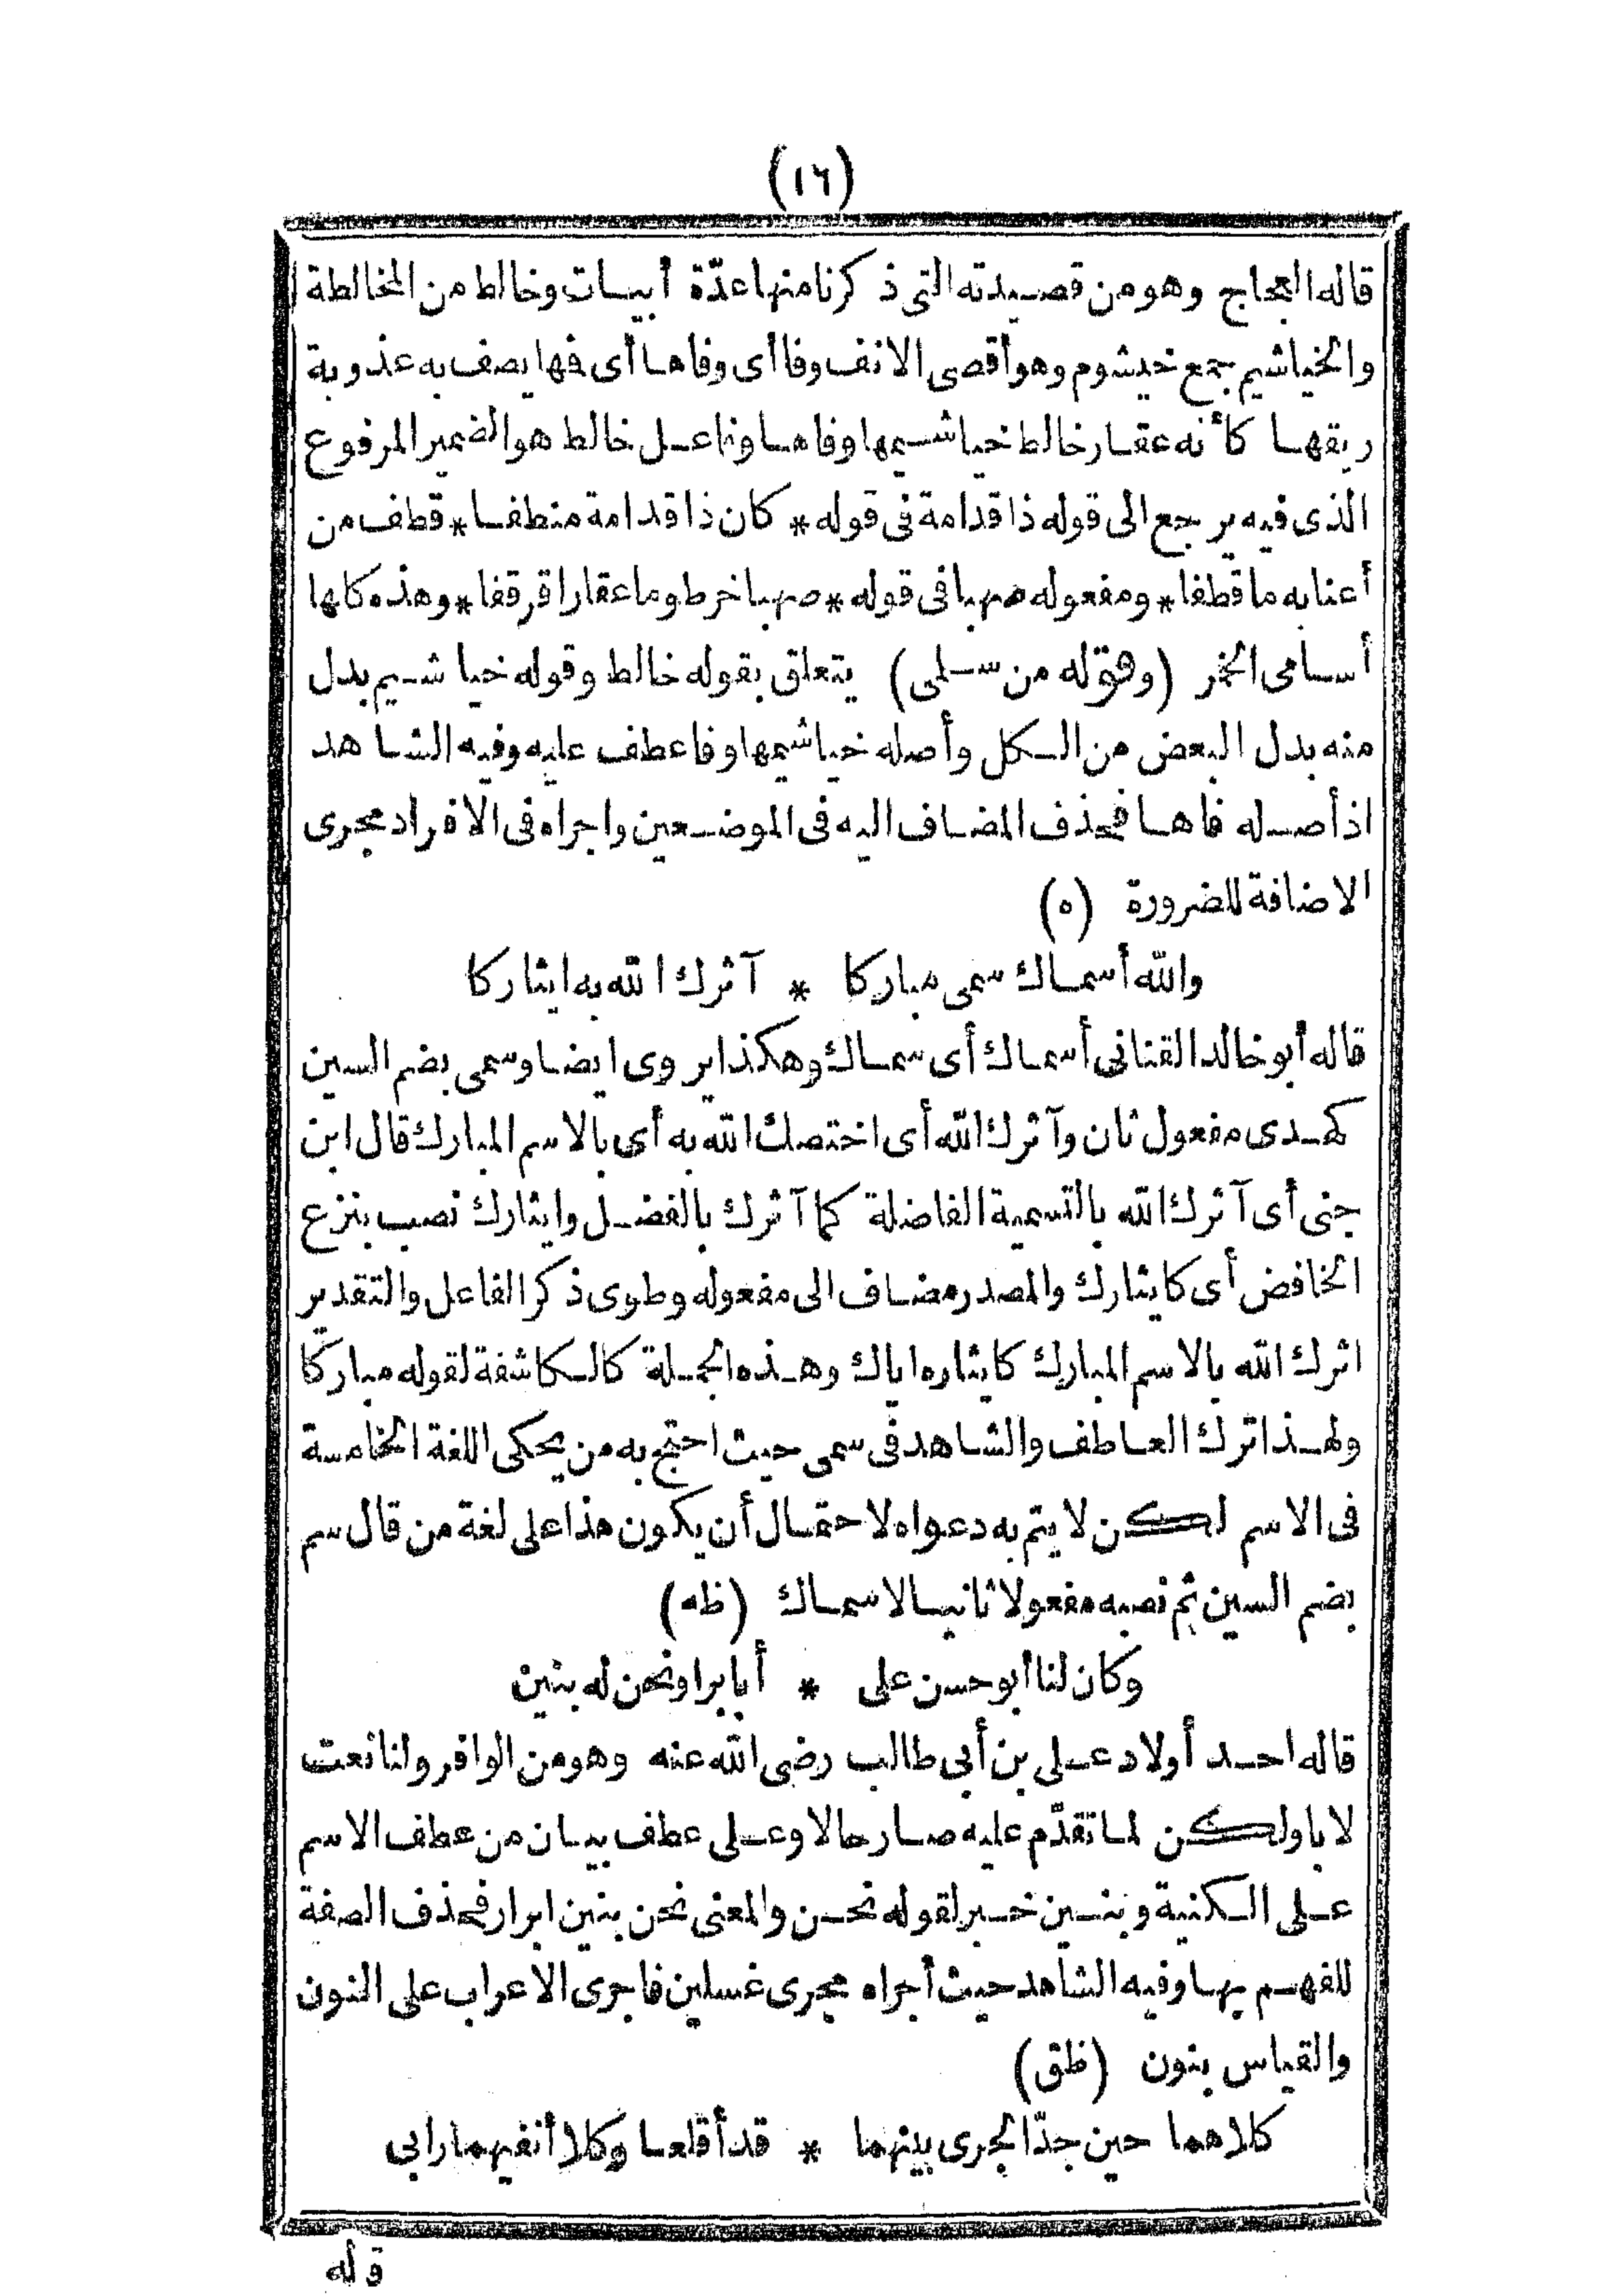 (١٦)
قاله العجاج وهو من قصيدته التى ذكرنا منها عدّة أبيات وخالط من المخالطة
والخياشيم جمع خيشوم وهو أقصى الانف وفا أى وفاها أى فها يصف به عذوبة
ريقها كأنه عقار خالط خياشيمها وفاها وفاعل خالط هو الضمير المرفوع
الذى فيه يرجع الى قوله ذا قدامة فى قوله * كان ذا قدامة منطفا * قطف من
أعنابه ما قطفا * ومفعوله صهبا فى قوله * صهبا خرطوما عقارا قرقفا * وهذه كلها
أسامى الخمر (وقوله من سلمى) يتعلق بقوله خالط وقوله خياشيم بدل
منه بدل البعض من الكل وأصله خياشيمها وفا عطف عليه وفيه الشاهد
اذ أصله فاها فحذف المضاف اليه فى الموضعين واجراه فى الافراد مجرى
الاضافة للضرورة (ه)
والله أسماك سمى مباركا * آثرك الله به ايثاركا
قاله أبو خالد القنانى أسماك أى سماك وهكذا يروى ايضا وسمى بضم السين
كهدى مفعول ثان وآثرك الله أى اختصك الله به أى بالاسم المبارك قال ابن
جنى أى آثرك الله بالتسمية الفاضلة كما آثرك بالفضل وايثارك نصب بنزع
الخافض أى كايثارك والمصدر مضاف الى مفعوله وطوى ذكر الفاعل والتقدير
اثرك الله بالاسم المبارك كايثاره اياك وهذه الجملة كالكاشفة لقوله مباركا
ولهذا ترك العاطف والشاهد فى سمى حيث احتج به من يحكى اللغة الخامسة
فى الاسم لكن لا يتم به دعواه لاحتمال أن يكون هذا على لغة من قال سم
بضم السين ثم نصبه مفعولا ثانيا لاسماك (ظه)
وكان لنا أبو حسن على * أبا برا ونحن له بنين
قاله احد أولاد على بن أبى طالب رضى الله عنه وهو من الوافر ولنا نعت
لابا ولكن لما تقدّم عليه صار حالا وعلى عطف بيان من عطف الاسم
على الكنية وبنين خبر لقوله نحن والمعنى نحن بنين ابرار فحذف الصفة
للفهم بها وفيه الشاهد حيث أجراه مجرى غسلين فاجرى الاعراب على النون
والقياس بنون (ظق)
كلاهما حين جدّ الجرى بينهما * قد أقلعا وكلا أنفيهما رابى
قوله